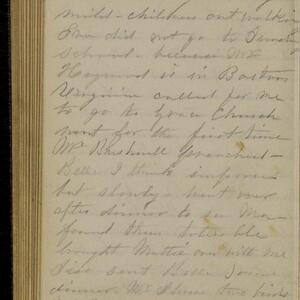 mild - children out walking
Eva did not go to Sunday
school - because Mr
Haywood is in Boston
Virginia called for me
to go to Church
went for the first time
Mr Bushnell preached -
Belle I think improves
but slowly - went over
after dinner to see Ma
found them
brought Mattie over with me
I sent Belle some
dinner Mr two birds